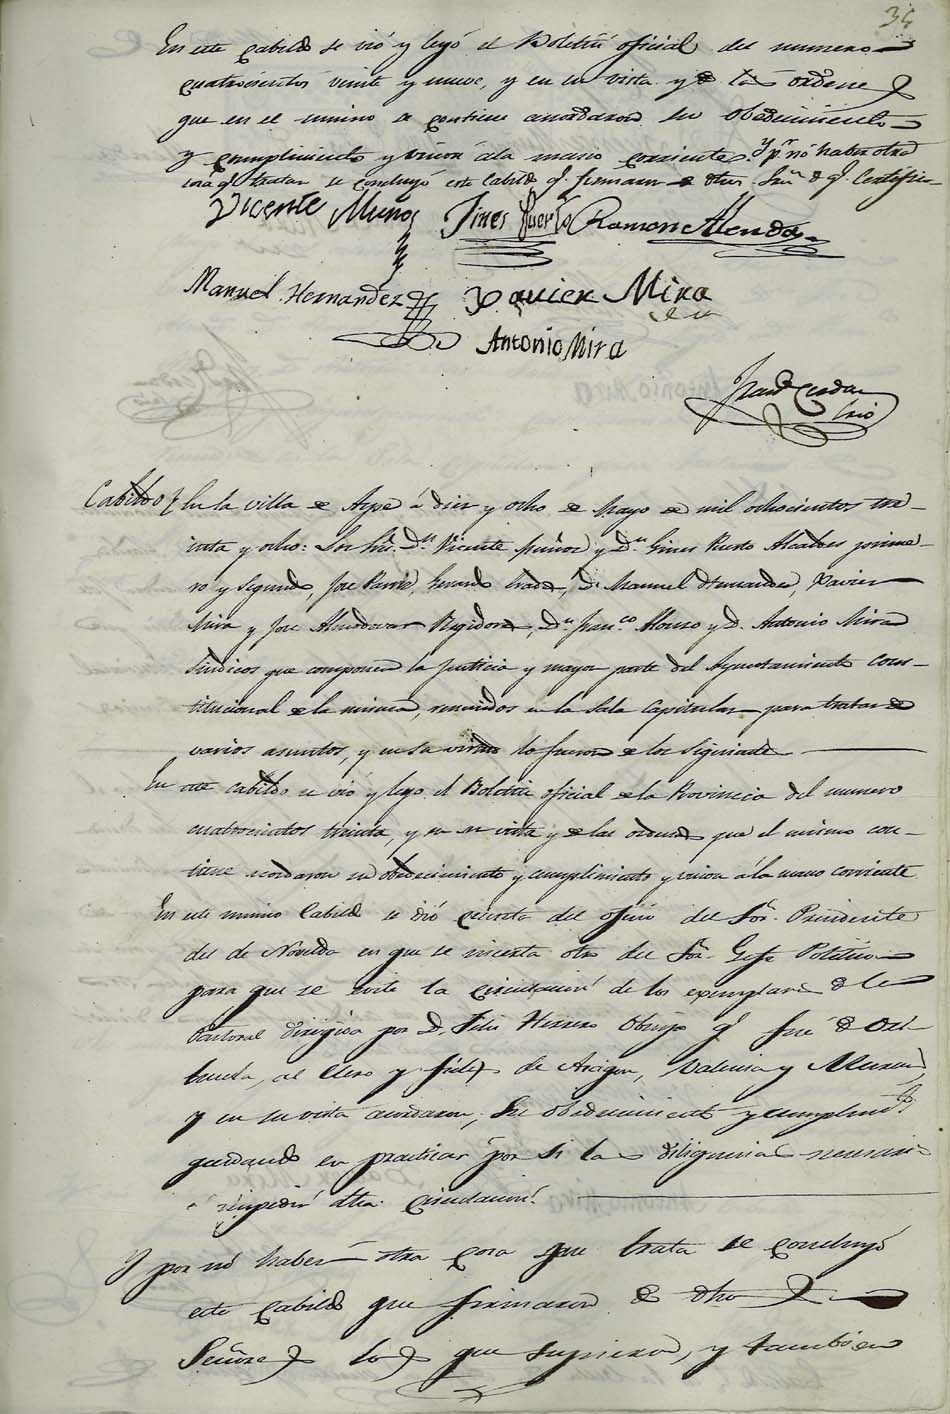 34
En este Cabildo se vió y leyó el Boletin oficial del numero
cuatrocientos veinte y nueve, y en su vista y de las ordenes
que en el mismo se contiene acordaron su obedecimiento
y cumplimiento y viniera á la mano corriente. Y pr. nó haber otra
cosa qe. tratar se concluyó este Cabildo qe. firmaron de dhos Sres. de qe. Certifico
Vicente Muños Jines Puerto Ramon Alenda
Manuel Hernandez Xavier Mira
Antonio Mira
Franco. Cerdan
Srio
Cabildo En la villa de Aspe á diez y ocho de Mayo de mil ochocientos tre-
inta y ocho: Los Sres. Dn. Vicente Muñoz y Dn. Gines Puerto Alcaldes prime-
ro y segundo, Jose Pavia, Gerardo, Dn. Manuel Hernandez, Xavier
Mira y Jose Almodovar Regidores, Dn. Franco. Alonso y D. Antonio Mira
Sindicos que componen la justicia y mayor parte del Ayuntamiento Cons-
titucional de la misma, reunidos en la Sala Capitular para tratar de
varios asuntos, y en su virtud lo fueron de los siguientes
En este cabildo se vió y leyo el Boletin oficial de la Provincia del numero
cuatrocientos treinta, y en su vista y de las ordenes que el mismo con-
tiene acordaron su obedecimiento y cumplimiento y viniera á la mano corriente
En este mismo Cabildo se dió cuenta del oficio del Sor. Presidente
del de Novelda en que se inserta otro del Sor. Gefe Politico
para que se evite la circulacion de los exemplares de la
Pastoral dirigida por D. Felis Herrero Obispo qe. fué de Ori-
huela, al Clero y fieles de Aragon, Valencia y Murcia,
y en su vista acordaron, su obedecimiento y cumplimto.
quedando en practicar por si las diligencias necesarias
á impedir dha. circulacion.
Y por nó haber otra cosa que tratar se concluyó
este Cabildo que firmaron de dhos
Señores los que supieron, y tambien